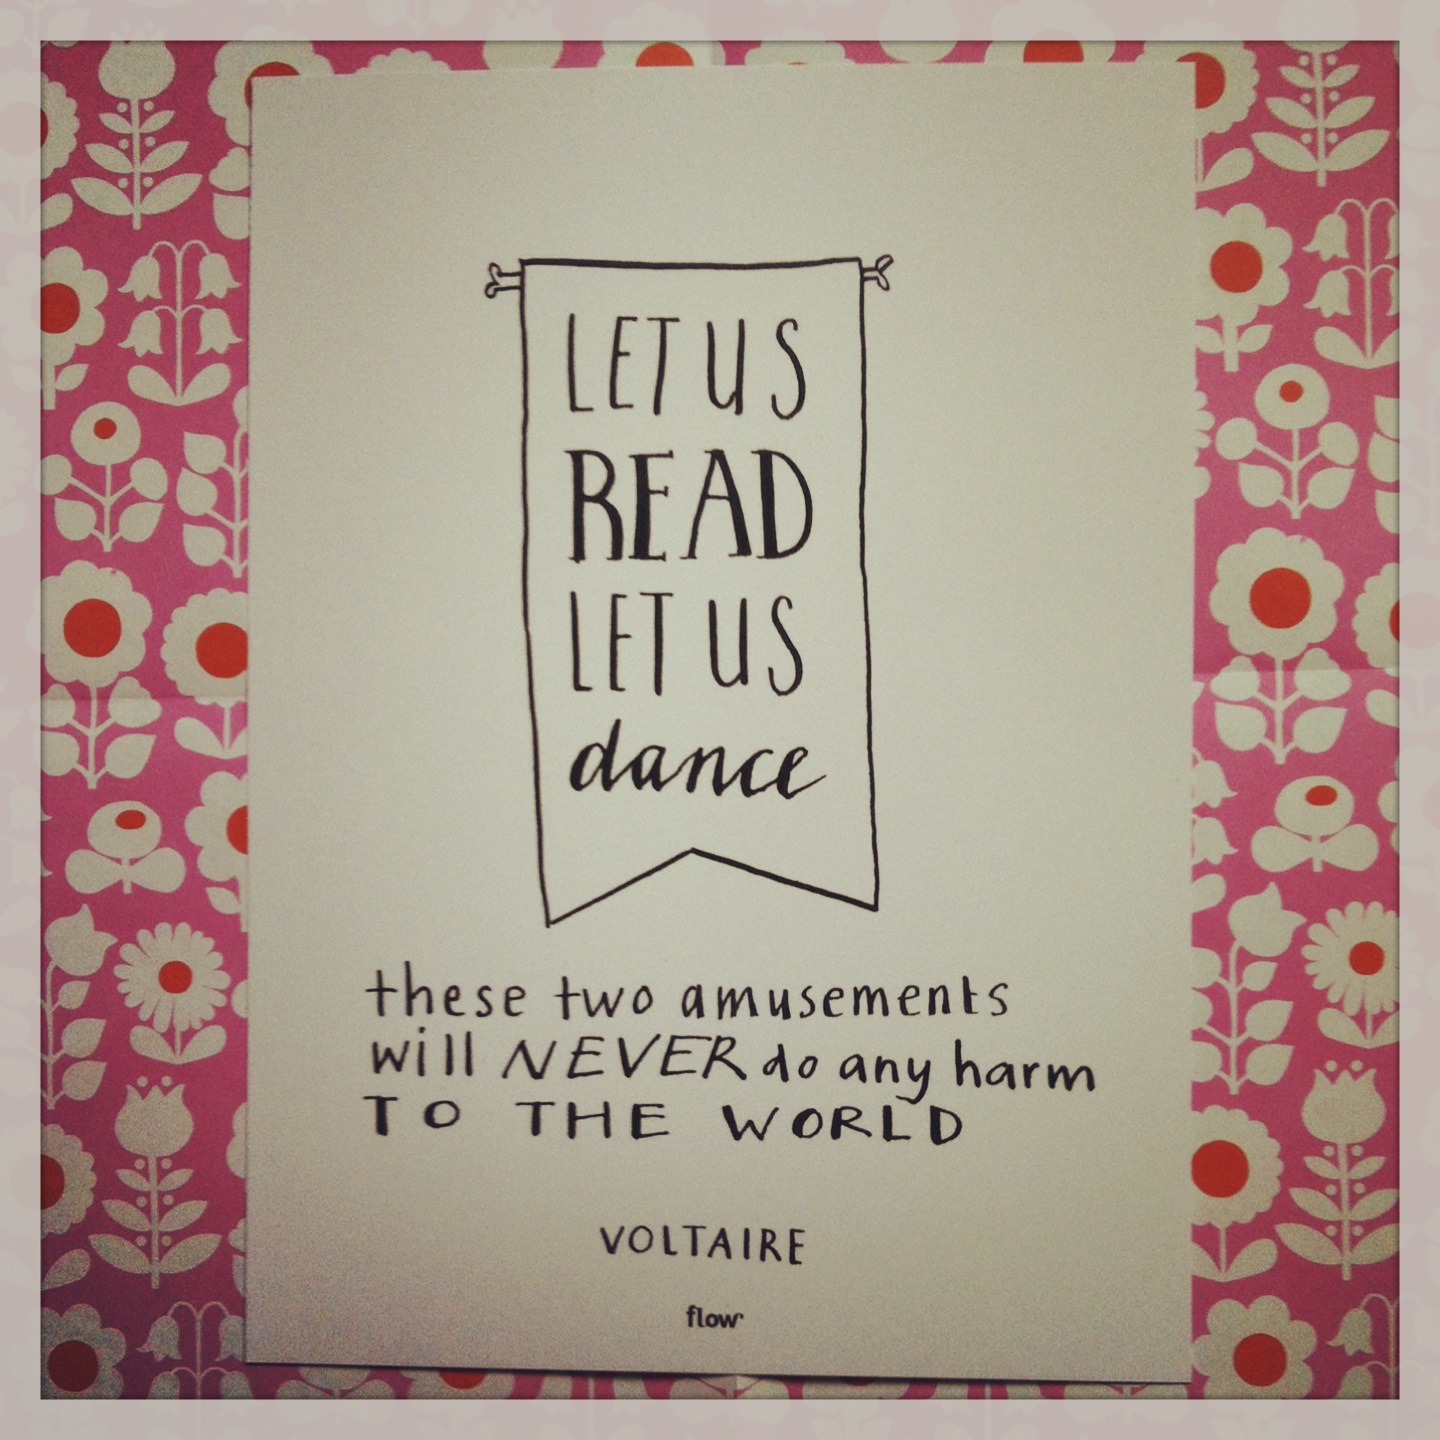 LET US
READ
LET US
dance
these two amusements
will NEVER do any harm
TO THE WORLD
VOLTAIRE
flow